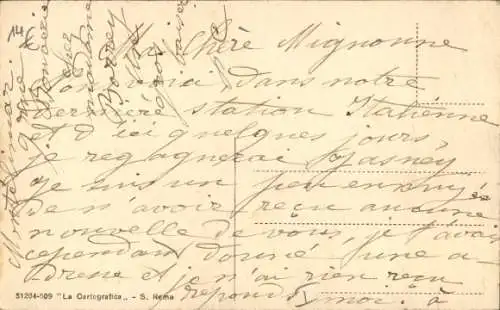 Ma Chère Mignonne
voici dans notre
dernière station Italienne
et d'ici quelques jours,
je regagnerai
Je suis un peu ennuyé
de n'avoir reçu aucune
nouvelle de vous, j'avais
cependant donné une a-
dresse et je n'ai rien reçu
réponds moi. à
Montélimar.
chez
madame
gros
51264-509 "La Cartografica" - S. Remo